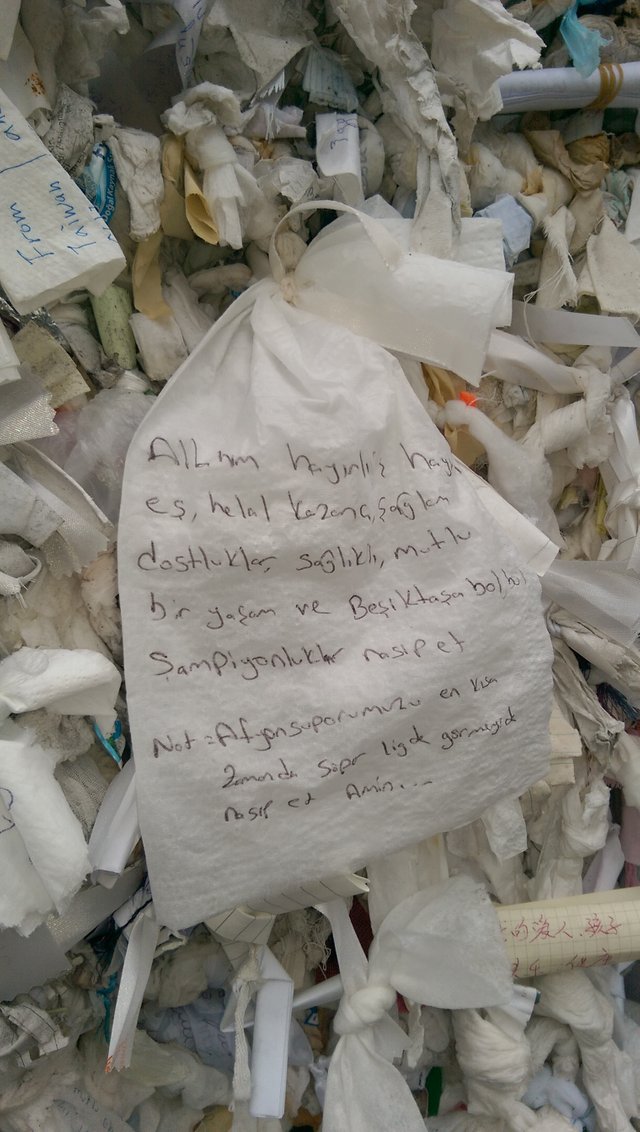 From
Taiwan
Allhım hayırlı iş hayı
eş, helal kazanç, sağlam
dostluklar sağlıklı, mutlu
bir yaşam ve Beşiktaşa bol bol
Şampiyonluklar nasip et
Not = Afyonsuporumuzu en kısa
Zamanda süper ligde görmeyide
nasip et Amin...
的家人、孩子